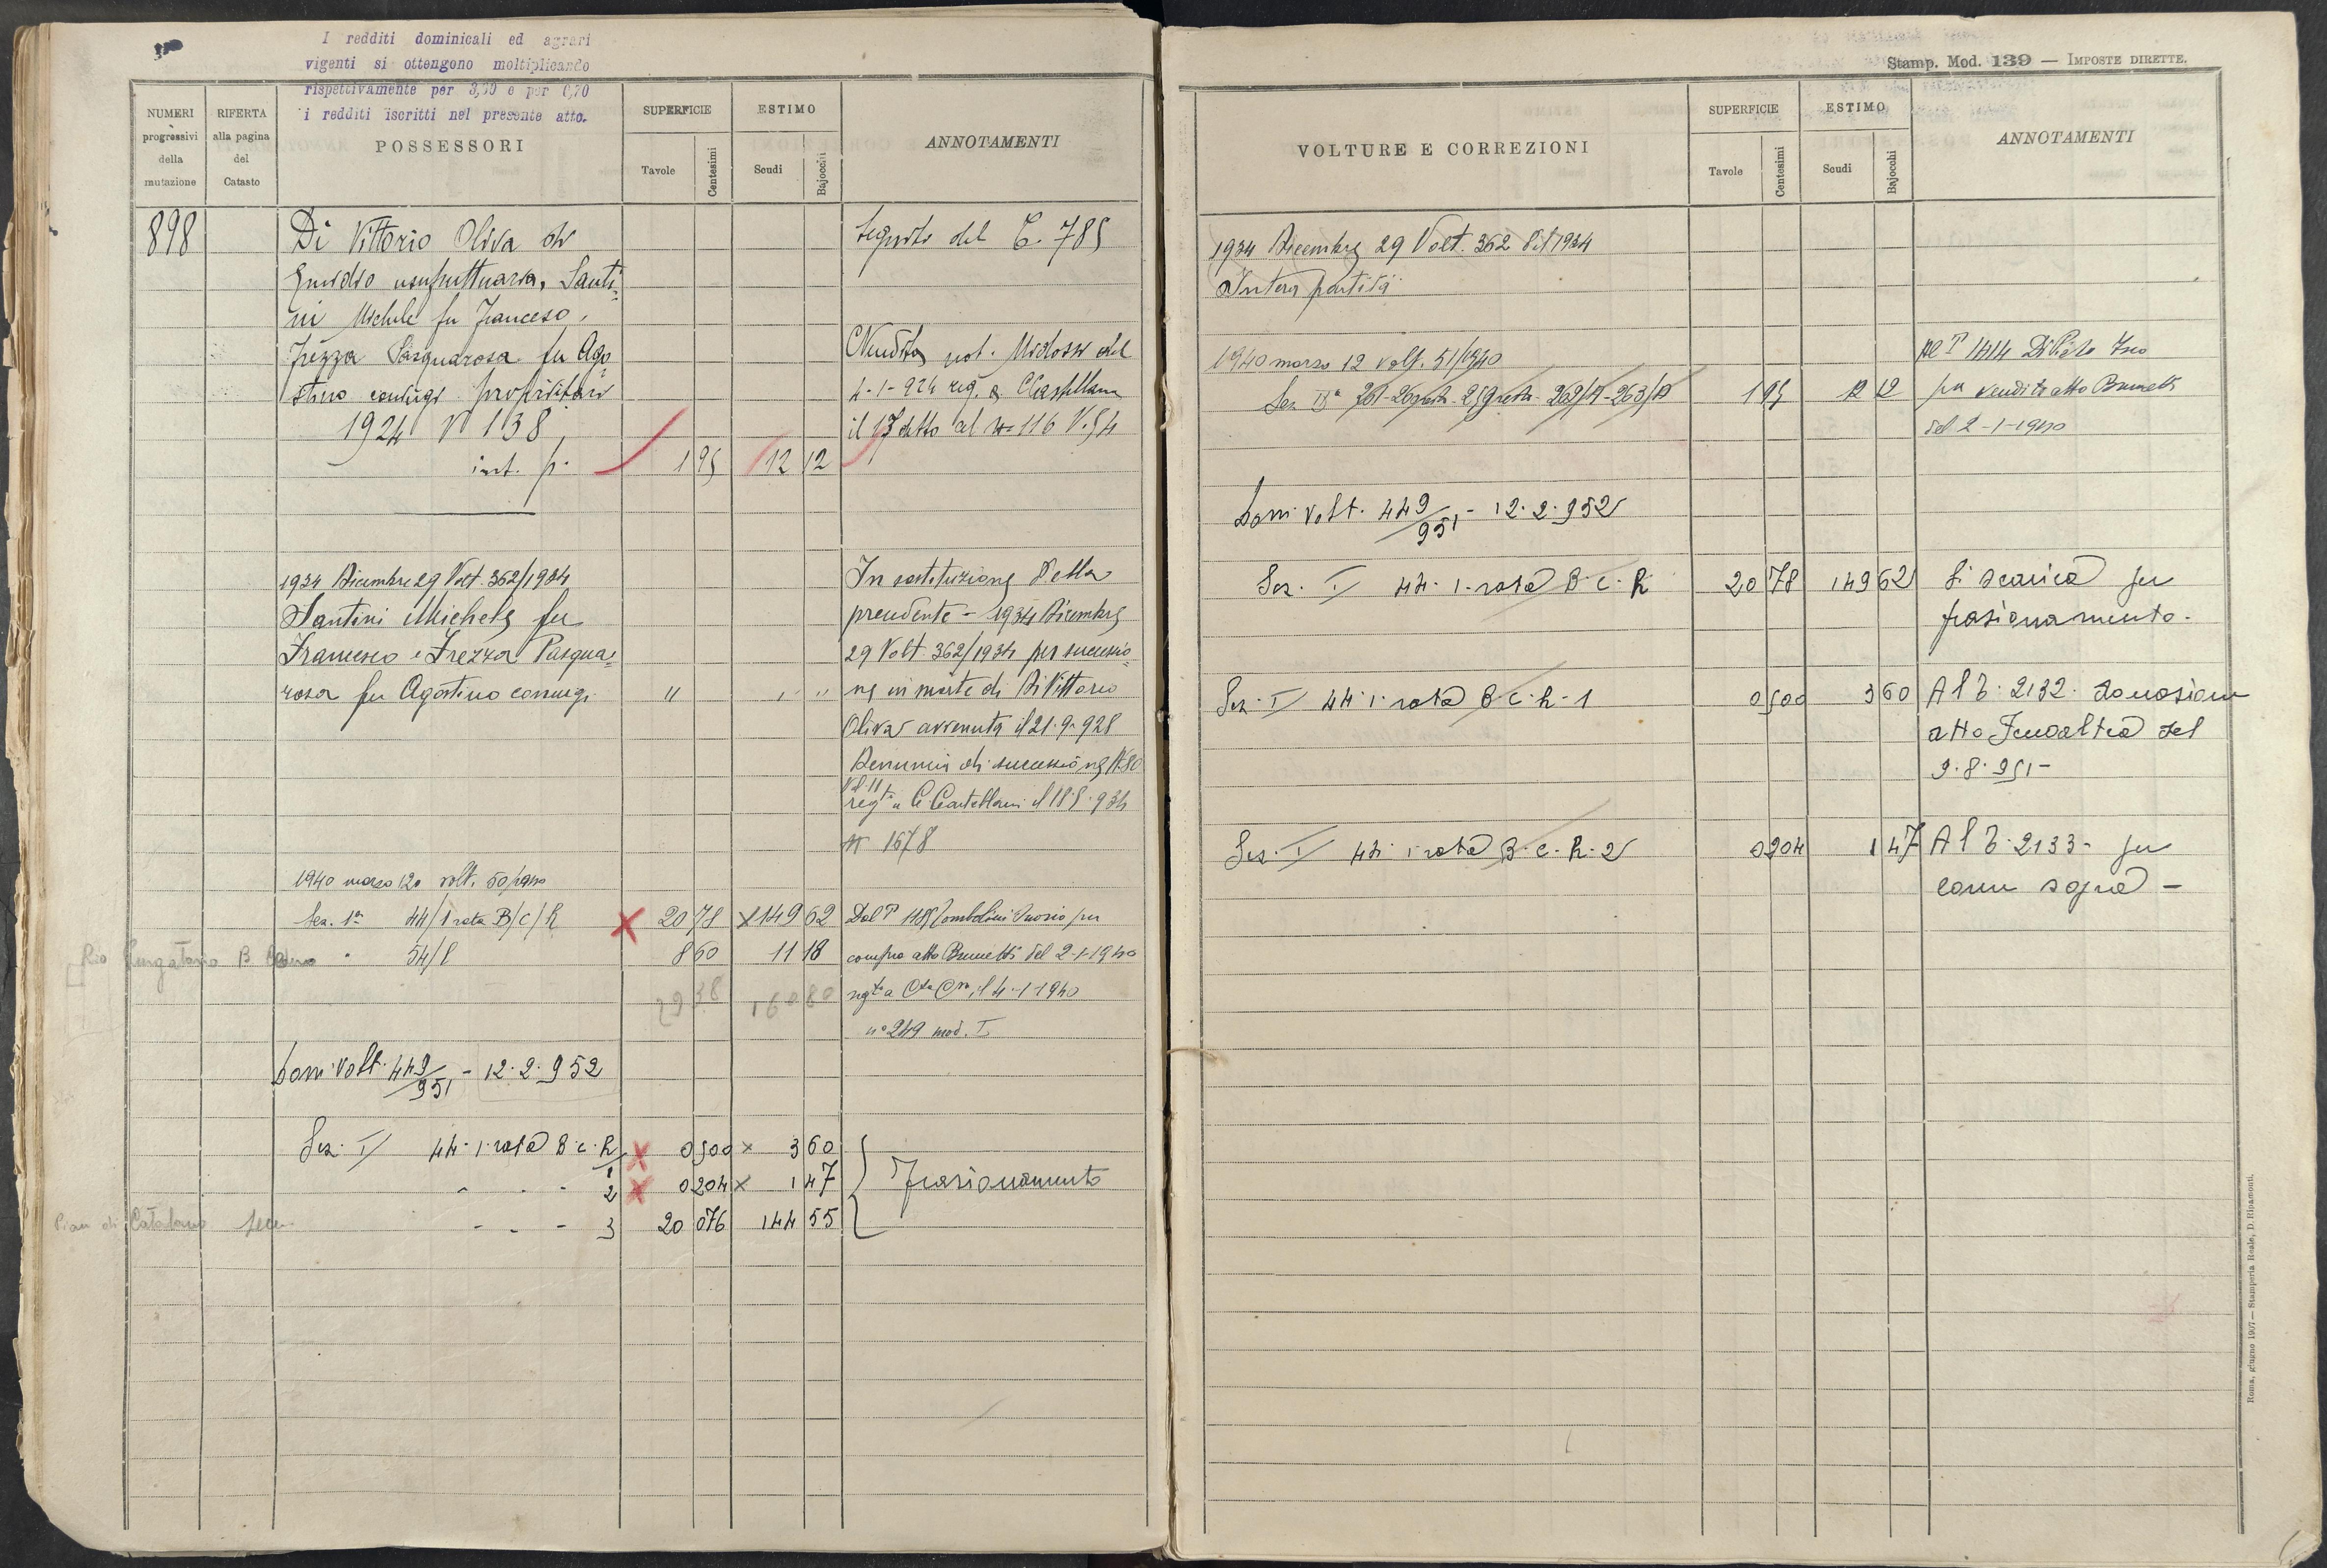 I redditi dominicali ed agrari
vigenti si ottengono moltiplicando
rispettivamente per 3,70 e per 0,70
i redditi iscritti nel presente atto.
NUMERI progressivi della mutazione
RIFERTA alla pagina del Catasto
POSSESSORI
SUPERFICIE
Tavole
Centesimi
ESTIMO
Scudi
Bajocchi
ANNOTAMENTI
898
Di Vittorio Oliva di
Emidio usufruttuaria, Santi=
ni Michele fu Francesco,
Frezza Pasquarosa fu Ago
stino coniugi proprietari
1924 V 138
int. p. 1 95 12 12
Seguito del C. 785
Vendita not. Midossi del
4-1-924 reg. a CCastellana
il 17 detto al N 116 V. 54
1934 Dicembre 29 Volt. 362/1934
Santini Michele fu
Francesco e Frezza Pasqua=
rosa fu Agostino coniugi " " "
In sostituzione della
precedente - 1934 Dicembre
29 Volt 362/1934 per successio=
ne in morte di Di Vittorio
Oliva avvenuta il 21-9-928
Denuncia di successione N 80
Vol 11
regta a C Castellana il 18-5-934
N 1678
1940 marzo 12 volt. 50/1940
Sez. 1a 44/1 rata B/C/R X 20 78 X 149 62
Rio Purgatorio B " 54/8 8 60 11 18
29 38 160 80
Dal P Tombolini per
compra atto Brunetti del 2-1-1940
regta a Cta Cna, il 4-1-1940
n° 249 mod. I
Dom. Volt. 449/951 - 12.2.952
Sez. I 44.1. rata B.C.R/1 X 0 500 X 3 60
- - - 2 X 0 204 X 1 47
Pian di Catalano - - - 3 20 076 144 55
Frazionamento
Stamp. Mod. 139 — IMPOSTE DIRETTE.
VOLTURE E CORREZIONI
SUPERFICIE
Tavole
Centesimi
ESTIMO
Scudi
Bajocchi
ANNOTAMENTI
1934 Dicembre 29 Volt. 362 del 1934
Intera partita
1940 marzo 12 volt. 51/1940
Sez IIa 261-260 resta-259 resta-262/A-263/A 1 95 12 12
Al P 1414
per vendita atto Brunetti
del 2-1-1940
Dom. Volt. 449/951 - 12.2.952
Sez. I 44.1.rata B.C.R 20 78 149 62
Si scarica per
frazionamento.
Sez. I 44.1.rata B.C.R.1 0 500 3 60
Al P. 2132. donazione
atto Fenoaltea del
9.8.951-
Sez. I 44.1 rata B.C.R.2 0 204 1 47
Al P. 2133- per
come sopra -
Roma, giugno 1907 — Stamperia Reale, D. Ripamonti.